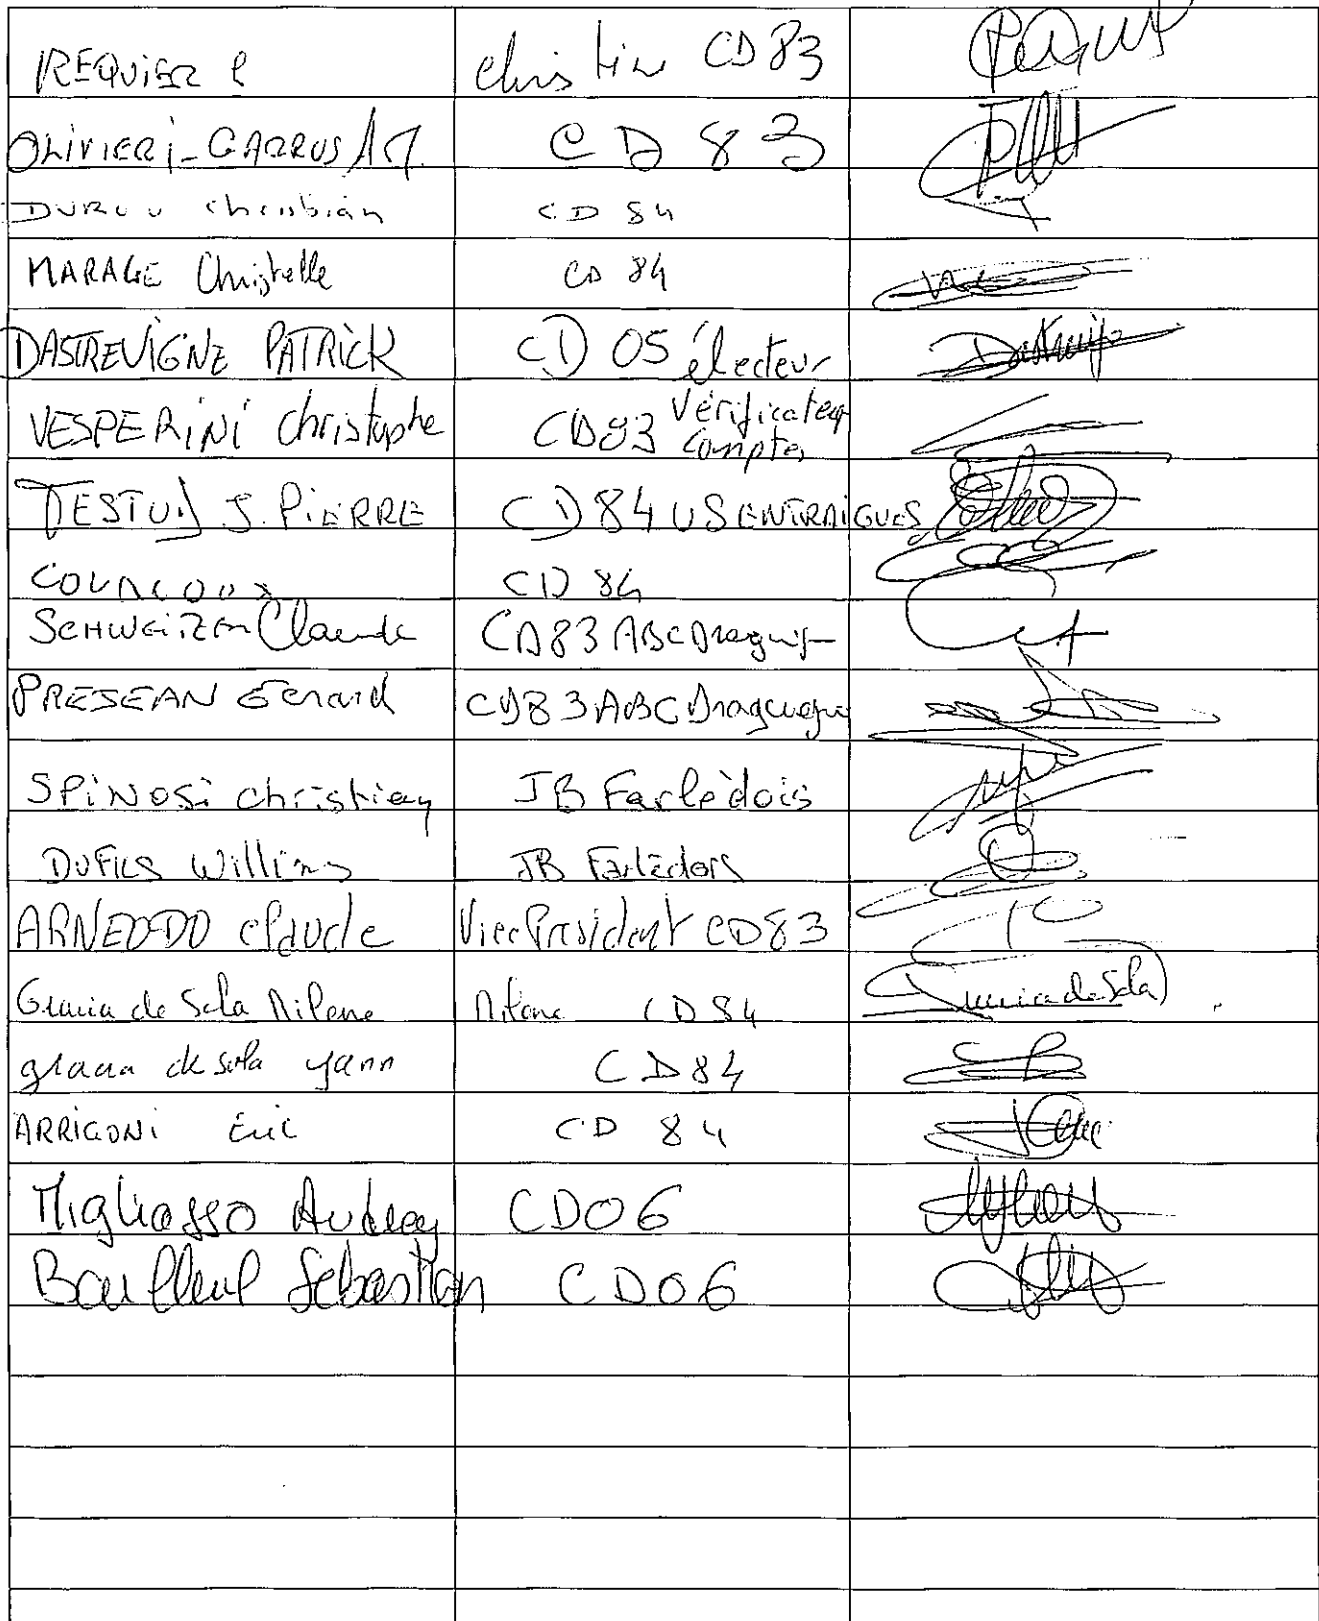 REQUIER C Christian CD 83
OLIVIERI-GARRUS CD 83
DURUU Christian CD 84
MARAGE Christelle CD 84
DASTREVIGNE PATRICK CD 05 électeur
VESPERINI christophe CD83 Vérificateur
Comptes
TESTUD J. PIERRE CD 84 US ENTRAIGUES
CD 84
SCHWEIZER Claude CD83 ABC Draguign
PREJEAN Gérard CD83 ABC Draguignan
SPINOSI christian JB Farlèdois
DUFILS William JB Farlédois
ARNEODO claude Vice Président CD83
Gracia de Sola Milene Milene CD 84
gracia de sola yann CD84
ARRIGONI Eric CD 84
Migliasso Audrey CD06
Sébastian CD06